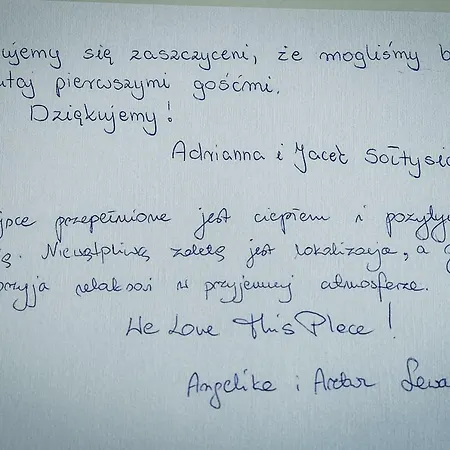 ujemy się zaszczyceni, że mogliśmy b
utaj pierwszymi gośćmi.
Dziękujemy!
Adrianna i Jacek Sołtysia
jsce przepełnione jest ciepłem i pozytyw
ą. Niewątpliwą zaletą jest lokalizacja, a
przyja relaksowi w przyjemnej atmosferze.
We Love This Place!
Angelika i Artur Lewa